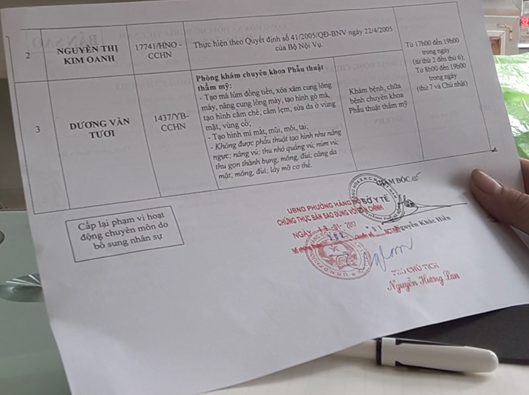 2
NGUYỄN THỊ
KIM OANH
17741/HNO -
CCHN
Thực hiện theo Quyết định số 41/2005/QĐ-BNV ngày 22/4/2005
của Bộ Nội Vụ.
Từ 17h00 đến 19h00
trong ngày
(từ thứ 2 đến thứ 6);
Từ 8h00 đến 19h00
trong ngày
(thứ 7 và Chủ nhật)
3
DƯƠNG VĂN
TƯƠI
1437/YB-
CCHN
Phòng khám chuyên khoa Phẫu thuật
thẩm mỹ:
- Tạo má lúm đồng tiền, xóa xăm cung lông
mày, nâng cung lông mày, tạo hình gò má,
tạo hình cằm chẻ, cằm lẹm, sửa da ở vùng
mặt, vùng cổ;
- Tạo hình mí mắt, mũi, môi, tai;
- Không được phẫu thuật tạo hình như nâng
ngực; nâng vú; thu nhỏ quầng vú; núm vú;
thu gọn thành bụng, mông, đùi; căng da
mặt, mông, đùi; lấy mỡ cơ thể.
Khám bệnh, chữa
bệnh chuyên khoa
Phẫu thuật thẩm mỹ
Cấp lại phạm vi hoạt
động chuyên môn do
bổ sung nhân sự
GIÁM ĐỐC
SỞ Y TẾ
Nguyễn Khắc Hiền
UBND PHƯỜNG HÀNG
CHỨNG THỰC BẢN SAO ĐÚNG VỚI BẢN CHÍNH
NGÀY
CHỦ TỊCH
Nguyễn Hương Lan